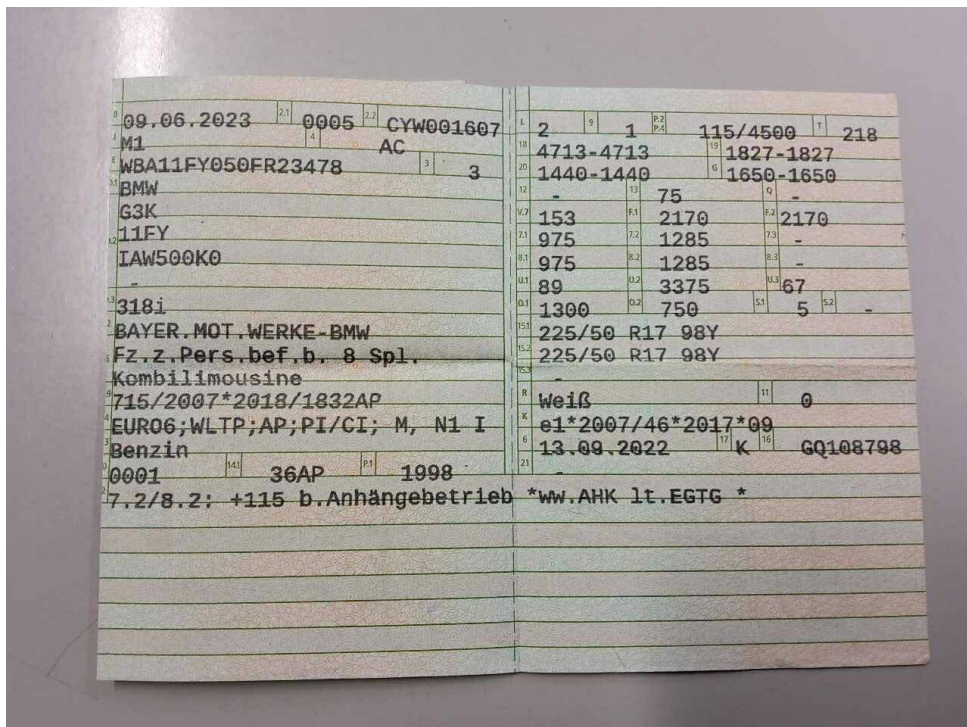 B 09.06.2023 2.1 0005 2.2 CYW001607
J M1 4 AC
E WBA11FY050FR23478 3 3
D.1 BMW
G3K
D.2 11FY
IAW500K0
-
D.3 318i
2 BAYER.MOT.WERKE-BMW
5 Fz.z.Pers.bef.b. 8 Spl.
Kombilimousine
V.9 715/2007*2018/1832AP
EURO6;WLTP;AP;PI/CI; M, N1 I
Benzin
0001 14.1 36AP P.1 1998
7.2/8.2: +115 b.Anhängebetrieb *ww.AHK lt.EGTG *
L 2 9 1 P.2 P.4 115/4500 T 218
18 4713-4713 19 1827-1827
20 1440-1440 G 1650-1650
12 - 13 75 Q -
V.7 153 F.1 2170 F.2 2170
7.1 975 7.2 1285 7.3 -
8.1 975 8.2 1285 8.3 -
U.1 89 U.2 3375 U.3 67
O.1 1300 O.2 750 S.1 5 S.2 -
15.1 225/50 R17 98Y
15.2 225/50 R17 98Y
15.3 -
R Weiß 11 0
K e1*2007/46*2017*09
6 13.09.2022 17 K 16 GQ108798
21 -